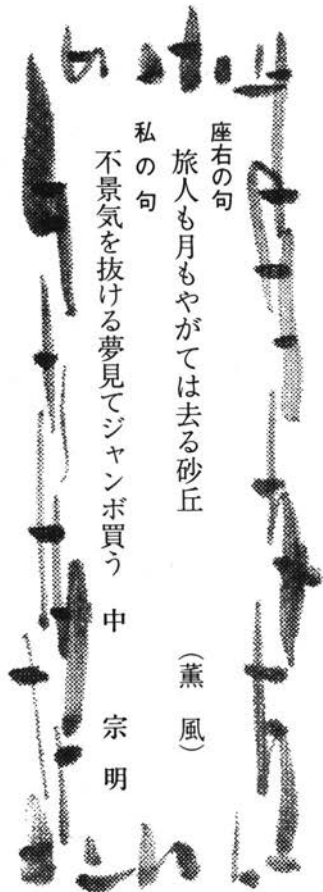 座右の句
旅人も月もやがては去る砂丘 (薫風)
私の句
不景気を抜ける夢見てジャンボ買う 中 宗明